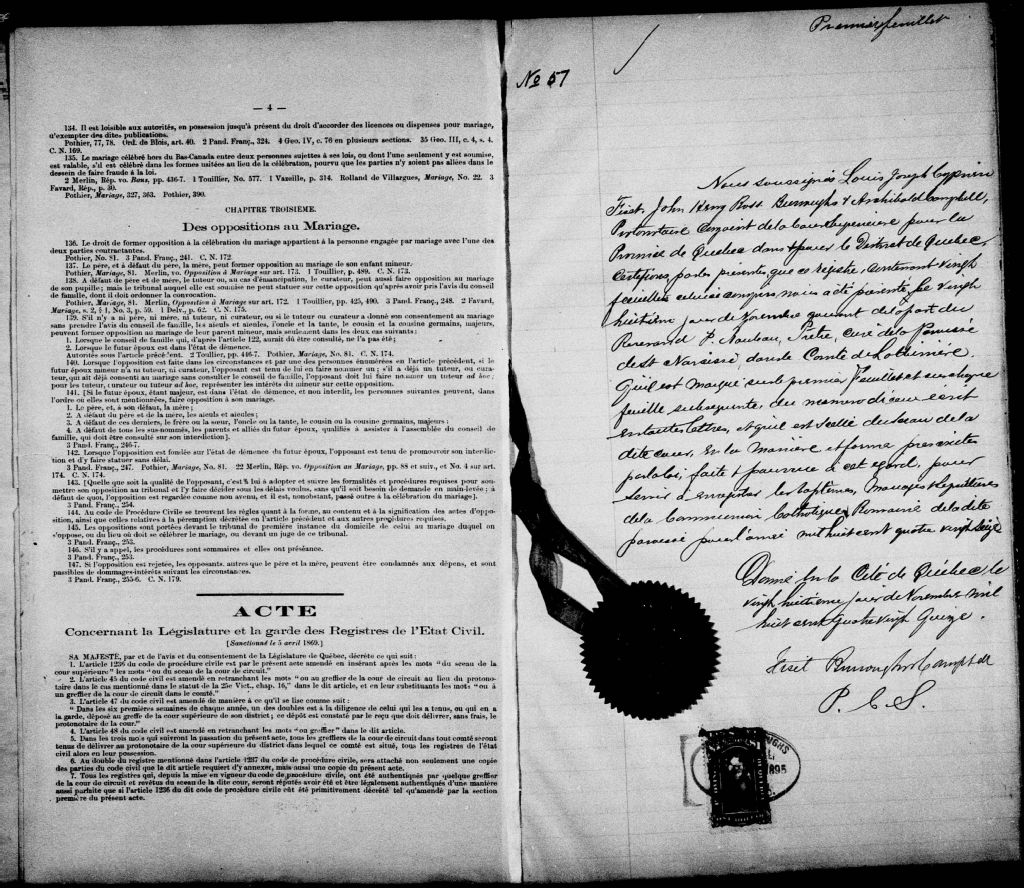 — 4 —
134. Il est loisible aux autorités, en possession jusqu'à présent du droit d'accorder des licences ou dispenses pour mariage,
d'exempter des dites publications.
Pothier, 77, 78. Ord. de Blois, art. 40. 2 Pand. Franç., 324. 4 Geo. IV, c. 76 en plusieurs sections. 35 Geo. III, c. 4, s. 4.
C. N. 169.
135. Le mariage célébré hors du Bas-Canada entre deux personnes sujettes à ses lois, ou dont l'une seulement y est soumise,
est valable, s'il est célébré dans les formes usitées au lieu de la célébration, pourvu que les parties n'y soient pas allées dans le
dessein de faire fraude à la loi.
2 Merlin, Rép. vo. Bans, pp. 436-7. 1 Touillier, No. 577. 1 Vazeille, p. 314. Rolland de Villargues, Mariage, No. 22. 3
Favard, Rép., p. 30.
Pothier, Mariage, 327, 363. Pothier, 390.
CHAPITRE TROISIÈME.
Des oppositions au Mariage.
136. Le droit de former opposition à la célébration du mariage appartient à la personne engagée par mariage avec l'une des
deux parties contractantes.
Pothier, No. 81. 3 Pand. Franç., 241. C. N. 172.
137. Le père, et à défaut du père, la mère, peut former opposition au mariage de son enfant mineur.
Pothier, Mariage, 81. Merlin, vo. Opposition à Mariage sur art. 173. 1 Touillier, p. 489. C. N. 173.
138. A défaut de père et de mère, le tuteur ou, au cas d'émancipation, le curateur, peut aussi faire opposition au mariage
de son pupille; mais le tribunal auquel elle est soumise ne peut statuer sur cette opposition qu'après avoir pris l'avis du conseil
de famille, dont il doit ordonner la convocation.
Pothier, Mariage, 81. Merlin, Opposition à Mariage sur art. 172. 1 Touillier, pp. 425, 490. 3 Pand. Franç., 248. 2 Favard,
Mariage, s. 2, § 1, No. 3, p. 59. 1 Delv., p. 62. C. N. 175.
139. S'il n'y a ni père, ni mère, ni tuteur, ni curateur, ou si le tuteur ou curateur a donné son consentement au mariage
sans prendre l'avis du conseil de famille, les aïeuls et aïeules, l'oncle et la tante, le cousin et la cousine germains, majeurs,
peuvent former opposition au mariage de leur parent mineur, mais seulement dans les deux cas suivants:
1. Lorsque le conseil de famille qui, d'après l'article 122, aurait dû être consulté, ne l'a pas été;
2. Lorsque le futur époux est dans l'état de démence.
Autorités sous l'article précédent. 2 Touillier, pp. 446-7. Pothier, Mariage, No. 81. C. N. 174.
140. Lorsque l'opposition est faite dans les circonstances et par une des personnes énumérées en l'article précédent, si le
futur époux mineur n'a ni tuteur, ni curateur, l'opposant est tenu de lui en faire nommer un; s'il a déjà un tuteur, ou cura-
teur, qui ait déjà consenti au mariage sans consulter le conseil de famille, l'opposant doit lui faire nommer un tuteur ad hoc;
pour les tuteur, curateur ou tuteur ad hoc, représenter les intérêts du mineur sur cette opposition.
141. [Si le futur époux, étant majeur, est dans l'état de démence, et non interdit, les personnes suivantes peuvent, dans
l'ordre ou elles sont mentionnées, faire opposition à son mariage.
1. Le père, et, à son défaut, la mère;
2. A défaut du père et de la mère, les aïeuls et aïeules;
3. A défaut de ces derniers, le frère ou la sœur, l'oncle ou la tante, le cousin ou la cousine germains, majeurs;
4. A défaut de tous les sus-nommés, les parents et alliés du futur époux, qualifiés à assister à l'assemblée du conseil de
famille, qui doit être consulté sur son interdiction].
3 Pand. Franç., 246-7.
142. Lorsque l'opposition est fondée sur l'état de démence du futur époux, l'opposant est tenu de promouvoir son interdic-
tion et d'y faire statuer sans délai.
3 Pand. Franç., 247. Pothier, Mariage, No. 81. 22 Merlin, Rép. vo. Opposition au Mariage, pp. 88 et suiv., et No. 4 sur art.
174. C. N. 174.
143. [Quelle que soit la qualité de l'opposant, c'est à lui à adopter et suivre les formalités et procédures requises pour sou-
mettre son opposition au tribunal et l'y faire décider sous les délais voulus, sans qu'il soit besoin de demande en main-levée; à
défaut de quoi, l'opposition est regardée comme non avenu, et il est, nonobstant, passé outre à la célébration du mariage].
3 Pand. Franç., 254.
144. Au code de Procédure Civile se trouvent les règles quant à la forme, au contenu et à la signification des actes d'oppo-
sition, ainsi que celles relatives à la péremption décrétée en l'article précédent et aux autres procédures requises.
145. Les oppositions sont portées devant le tribunal de première instance du domicile de celui au mariage duquel on
s'oppose, ou du lieu où doit se célébrer le mariage, ou devant un juge de ce tribunal.
3 Pand. Franç., 253.
146. S'il y a appel, les procédures sont sommaires et elles ont préséance.
3 Pand. Franç., 253.
147. Si l'opposition est rejetée, les opposants, autres que le père et la mère, peuvent être condamnés aux dépens, et sont
passibles de dommages-intérêts suivant les circonstances.
3 Pand. Franç., 255-6. C. N. 179.
ACTE
Concernant la Législature et la garde des Registres de l'Etat Civil.
[Sanctionné le 5 avril 1869.]
SA MAJESTÉ, par et de l'avis et du consentement de la Législature de Québec, décrète ce qui suit:
1. L'article 1236 du code de procédure civile est par le présent acte amendé en insérant après les mots "du sceau de la
cour supérieure" les mots "ou du sceau de la cour de circuit."
2. L'article 45 du code civil est amendé en retranchant les mots "ou au greffier de la cour de circuit au lieu du protono-
taire dans le cas mentionné dans le statut de la 25e Vict., chap. 16," dans le dit article, et en leur substituants les mots "ou à
un greffier de la cour de circuit dans le comté."
3. L'article 47 du code civil est amendé de manière à ce qu'il se lise comme suit:
"Dans les six premières semaines de chaque année, un des doubles est à la diligence de celui qui les a tenus, ou qui en a
la garde, déposé au greffe de la cour supérieure de son district; ce dépôt est constaté par le reçu que doit délivrer, sans frais, le
protonotaire de la cour."
4. L'article 48 du code civil est amendé en retranchant les mots "on greffier" dans le dit article.
5. Dans les trois mois qui suivront la passation du présent acte, tous les greffiers de la cour de circuit dans tout comté seront
tenus de délivrer au protonotaire de la cour supérieure du district dans lequel ce comté est situé, tous les registres de l'état
civil alors en leur possession.
6. Au double du registre mentionné dans l'article 1237 du code de procédure civile, sera attaché non seulement une copie
des parties du code civil que le dit article requiert d'y annexer, mais aussi une copie du présent acte.
7. Tous les registres qui, depuis la mise en vigueur du code de procédure civile, ont été authentiqués par quelque greffier
de la cour de circuit et revêtus du sceau de la dite cour, seront réputés avoir été et être légalement authentiqués d'une manière
aussi parfaite que si l'article 1236 du dit code de procédure civile eût été primitivement décrété tel qu'amendé par la section
première du présent acte.
Premier feuillet
No 57
Nous soussignés Louis Joseph Cyprien
Fiset, John Henry Ross Burroughs & Archibald Campbell,
Protonotaire Conjoint de la Cour Supérieure pour la
Province de Québec dans & pour le District de Québec,
Certifions par les présentes, que ce régistre, contenant vingt
feuillets celui-ci compris, nous a été présenté, ce vingt
huitième jour de novembre courant de la part du
Révérend F. Nadeau, Prêtre, Curé de la paroisse
de St Narcisse dans le Comté de Lotbinière.
Qu'il est Marqué sur le premier Feuillet et sur chaque
feuille subséquente, du numéro d'icelui écrit
en toutes lettres, et qu'il est scellé du sceau de la
dite cour, en la Manière et forme prescrites
par la loi, faite & pourvue à cet égard, pour
servir à enregistrer les baptêmes, Mariages & sépultures
de la Communion Catholique Romaine de la dite
paroisse pour l'année mil huit cent quatre vingt seize
Donné en la Cité de Québec, le
vingt huitième jour de Novembre mil
huit cent quatre vingt Quinze.
Fiset Burroughs & Campbell
P. C. S.
1895